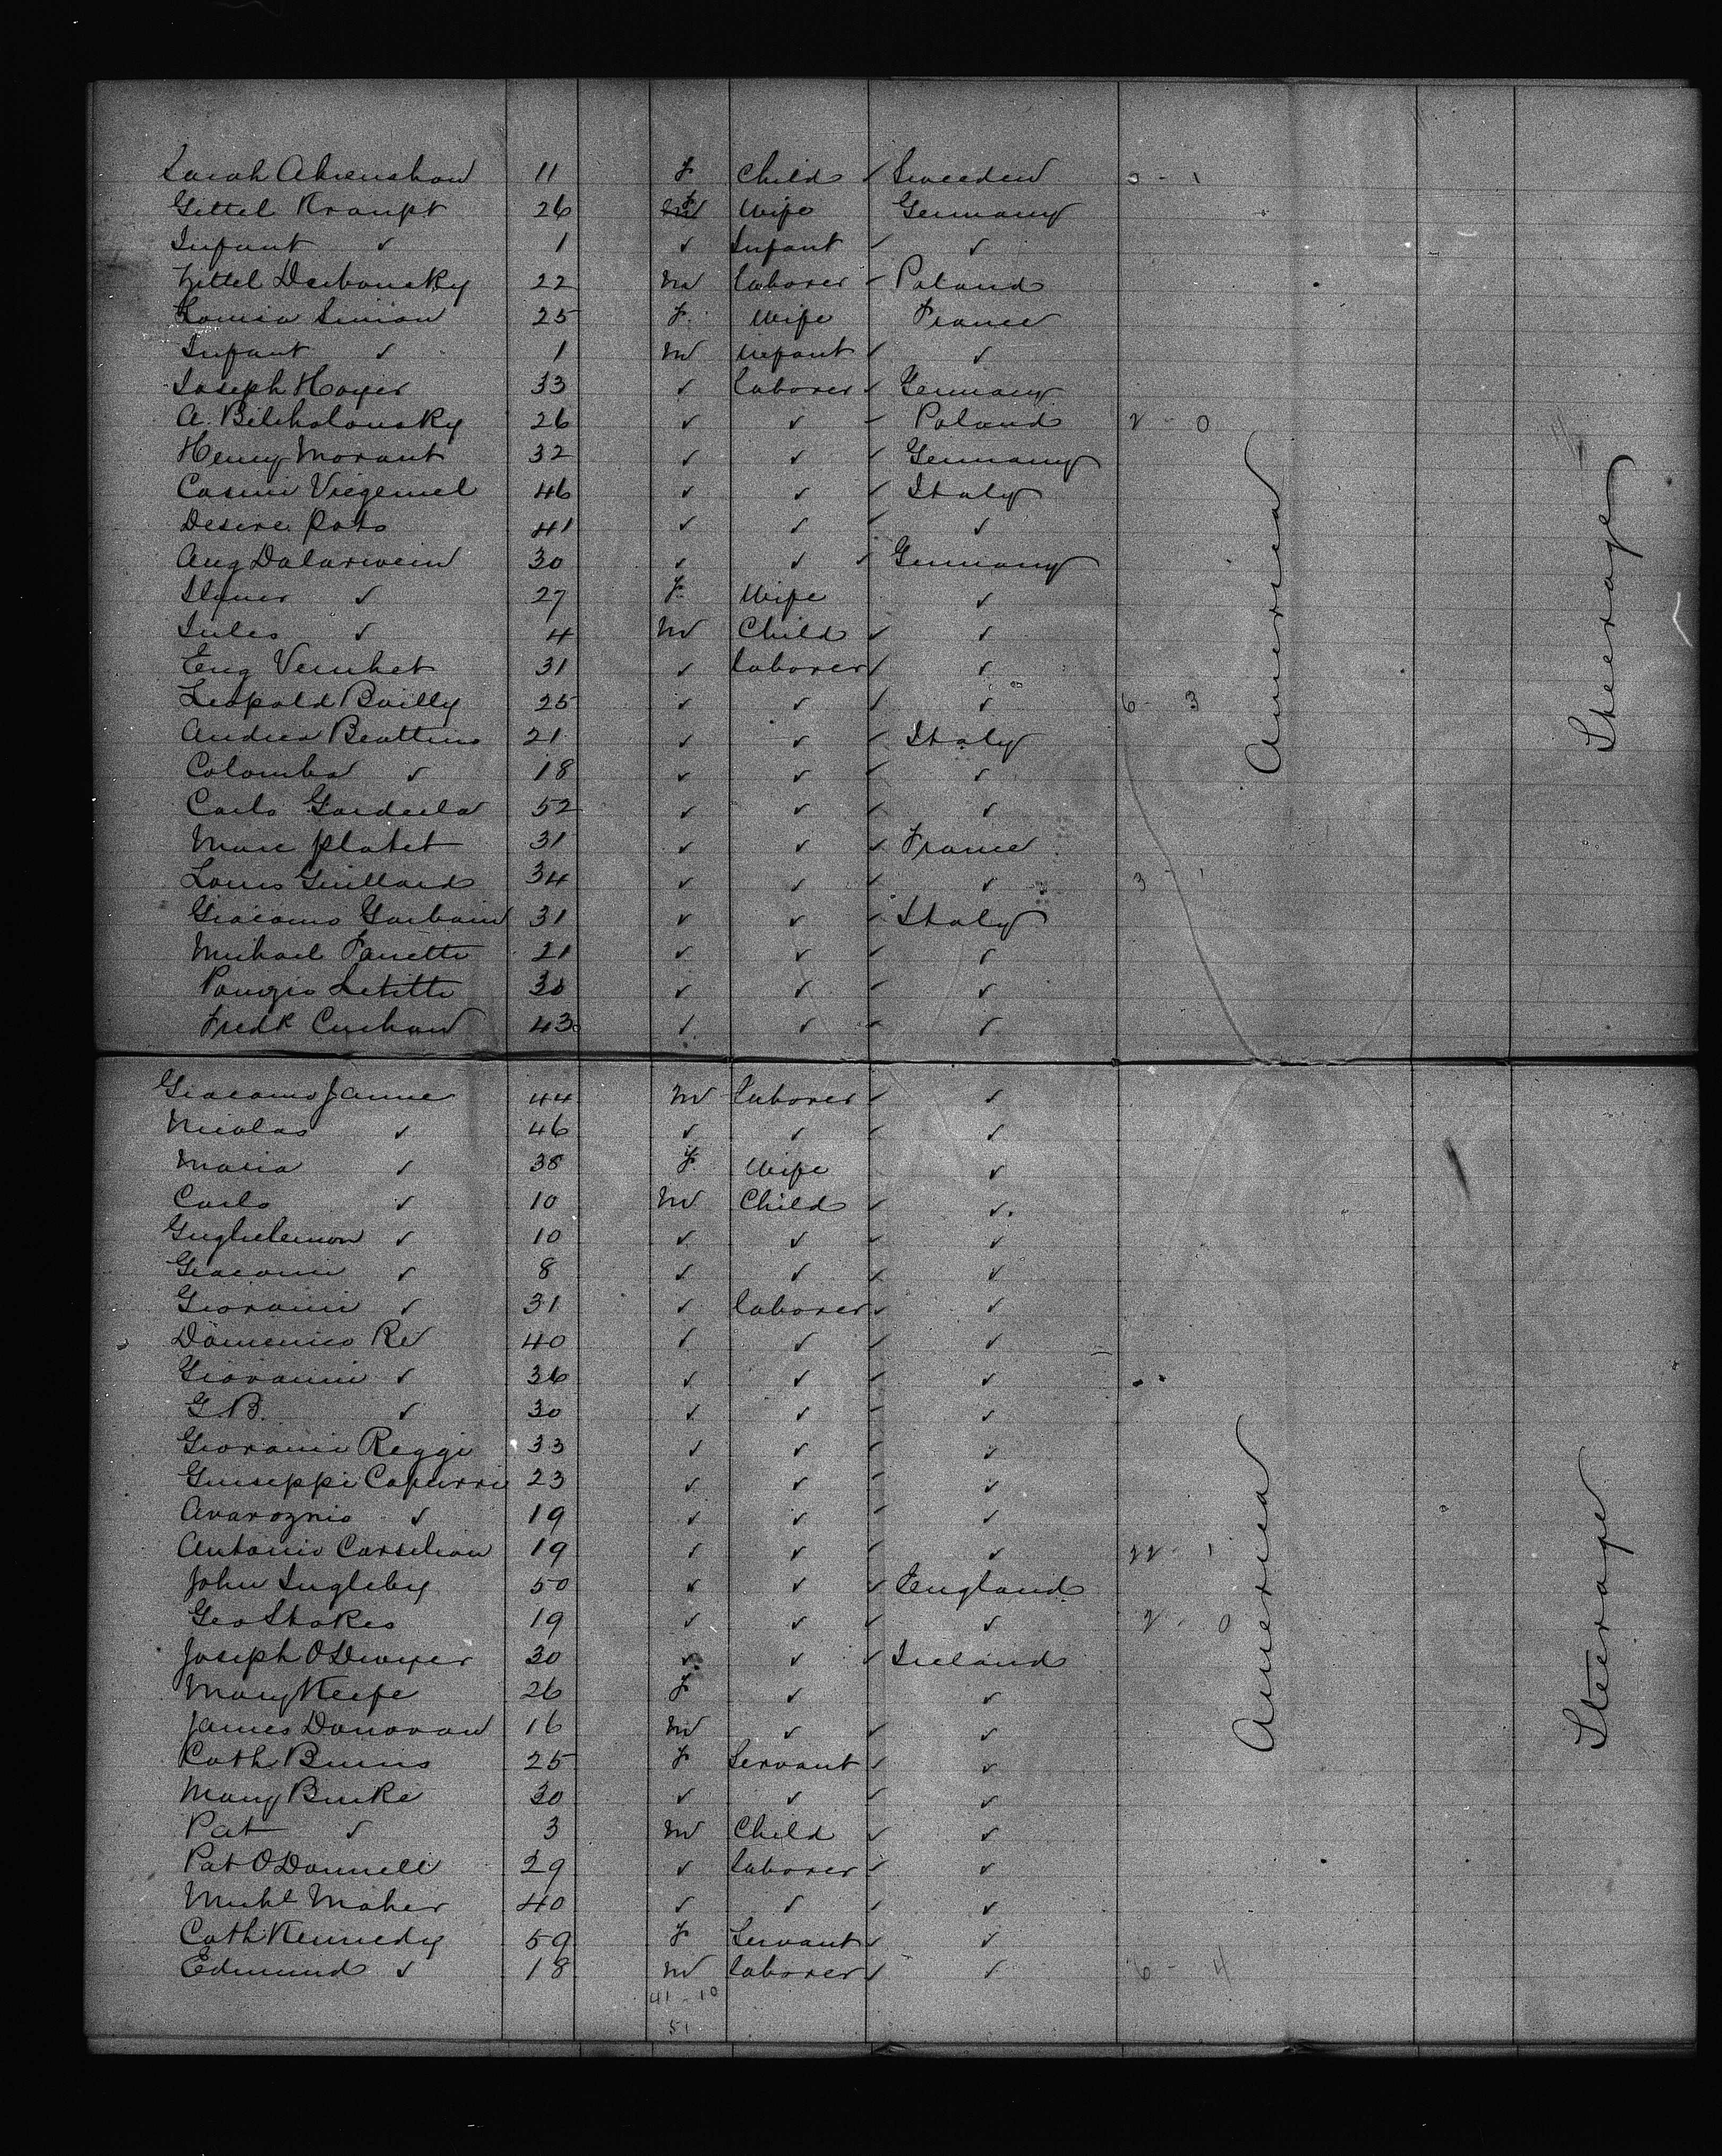 Sarah Ahrenshow 11 F Child ✓ Sweeden 0 - 1
Gittel Kraupt 26 F Wife Germany
Infant ✓ 1 ✓ Infant ✓ ✓
Zittel Derbonsky 22 M laborer ✓ Poland
Louisa Simon 25 F. Wife France
Infant ✓ 1 M Infant ✓ ✓
Joseph Hoyer 33 ✓ laborer ✓ Germany
A. Bilcholousky 26 ✓ ✓ - Poland 2 - 0
Henry Morant 32 ✓ ✓ ✓ Germany
Casimi Viegemel 46 ✓ ✓ ✓ Italy
Desire Pots 41 ✓ ✓ ✓ ✓
Aug Dalarwein 30 ✓ ✓ ✓ Germany
✓ 27 F Wife ✓
Jules ✓ 4 M Child ✓ ✓
Eug Vernhet 31 ✓ laborer ✓ ✓
Leopold Bailly 25 ✓ ✓ ✓ ✓ 6 - 3
Andrea Beattino 21 ✓ ✓ ✓ Italy
Colomba ✓ 18 ✓ ✓ ✓ ✓
Carlo Gardella 52 ✓ ✓ ✓ ✓
Marc Platet 31 ✓ ✓ ✓ France
Louis Guillard 34 ✓ ✓ ✓ ✓ 3 - 1
Giacomo Garbain 31 ✓ ✓ ✓ Italy
Michael Panetti 21 ✓ ✓ ✓ ✓
Letitti 30 ✓ ✓ ✓ ✓
Fredk Cuchow 43 ✓ ✓ ✓ ✓
America
Steerage
Giacomo Janne 44 M laborer ✓ ✓
Nicolas ✓ 46 ✓ ✓ ✓ ✓
Maria ✓ 38 F Wife ✓
Carlo ✓ 10 M Child ✓ ✓
Guglielemon ✓ 10 ✓ ✓ ✓
Giacomi ✓ 8 ✓ ✓ ✓ ✓
Giovanni ✓ 31 ✓ laborer ✓ ✓
Domenico Re 40 ✓ ✓ ✓ ✓
Giovanni ✓ 36 ✓ ✓ ✓ ✓
G.B. ✓ 30 ✓ ✓ ✓ ✓
Giovanni Reggi 33 ✓ ✓ ✓ ✓
Guiseppi Capurri 23 ✓ ✓ ✓ ✓
Avaroznio ✓ 19 ✓ ✓ ✓ ✓
Antonio Corselion 19 ✓ ✓ ✓ ✓ 22 - 1
John Ingleby 50 ✓ ✓ ✓ England
Geo Stokes 19 ✓ ✓ ✓ ✓ 2 - 0
Joseph O'Dwyer 30 ✓ ✓ ✓ Ireland
Mary Keefe 26 F ✓ ✓
James Donovan 16 M ✓ ✓ ✓
Cath Burns 25 F Servant ✓ ✓
Mary Burke 30 ✓ ✓ ✓ ✓
Pat ✓ 3 M Child ✓ ✓
Pat O'Donnell 29 ✓ laborer ✓ ✓
Michl Maher 40 ✓ ✓ ✓ ✓
Cath Kennedy 59 F Servant ✓ ✓
Edmund ✓ 18 M laborer ✓ ✓ 6 - 4
America
Steerage
41 - 10
51